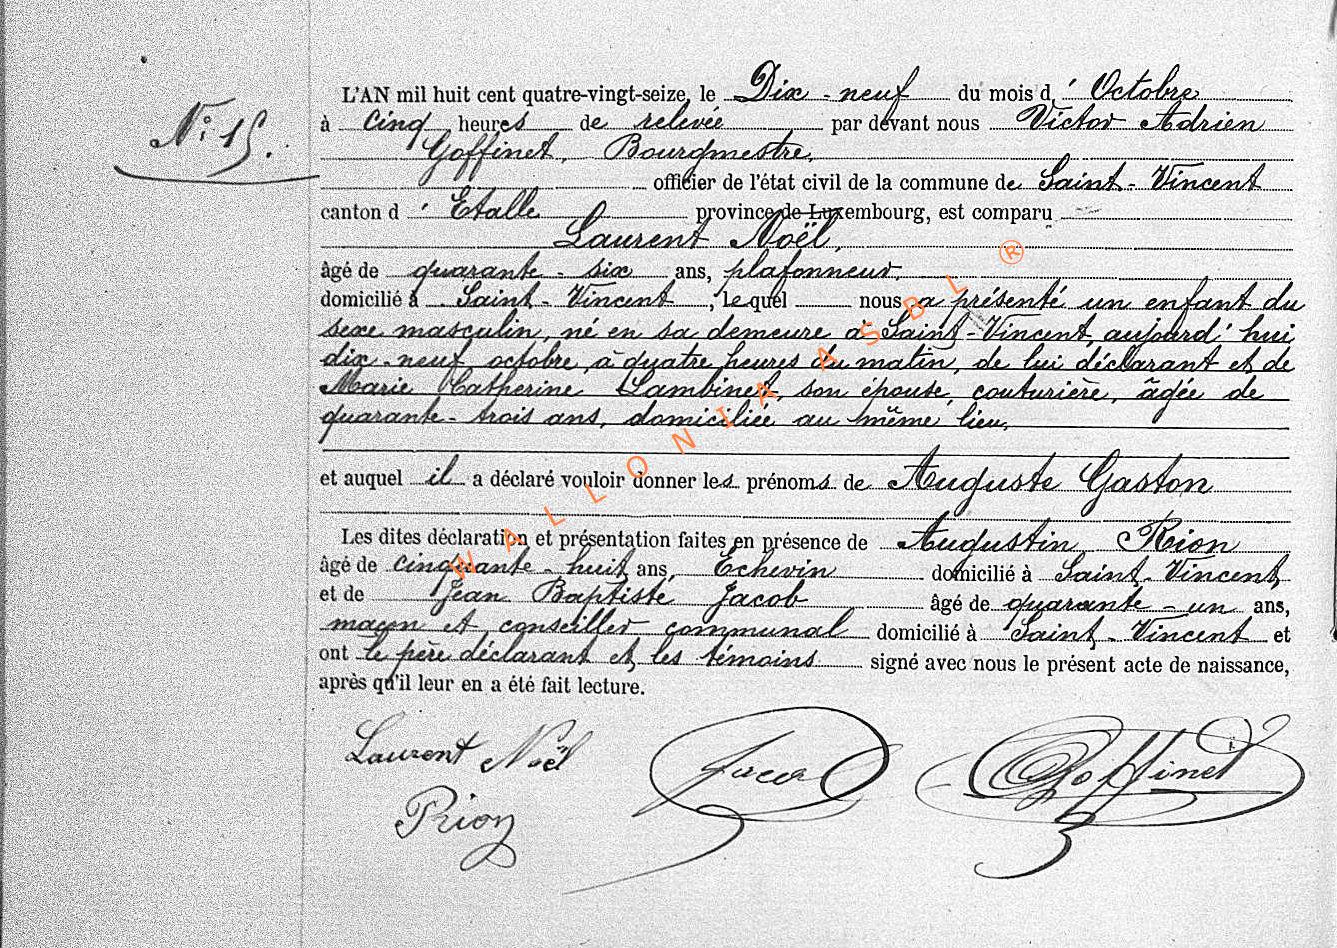 N.° 15.
L'AN mil huit cent quatre-vingt-seize, le Dix-neuf du mois d' Octobre
à cinq heures de relevée par devant nous Victor Adrien
Goffinet, Bourgmestre,
officier de l'état civil de la commune de Saint-Vincent
canton d' Etalle province de Luxembourg, est comparu
Laurent Noël,
âgé de quarante-six ans, plafonneur,
domicilié à Saint-Vincent, lequel nous a présenté un enfant du
sexe masculin, né en sa demeure à Saint-Vincent, aujourd'hui
dix-neuf octobre, à quatre heures du matin, de lui déclarant et de
Marie Catherine Lambinet, son épouse, couturière, âgée de
quarante-trois ans, domiciliée au même lieu,
et auquel il a déclaré vouloir donner les prénoms de Auguste Gaston
Les dites déclaration et présentation faites en présence de Augustin Rion
âgé de cinquante-huit ans, Echevin domicilié à Saint-Vincent
et de Jean Baptiste Jacob âgé de quarante-un ans,
maçon et conseiller communal domicilié à Saint-Vincent et
ont le père déclarant et les témoins signé avec nous le présent acte de naissance,
après qu'il leur en a été fait lecture.
Laurent Noël
Jacob
Goffinet
Rion
WALLONIA ASBL ®